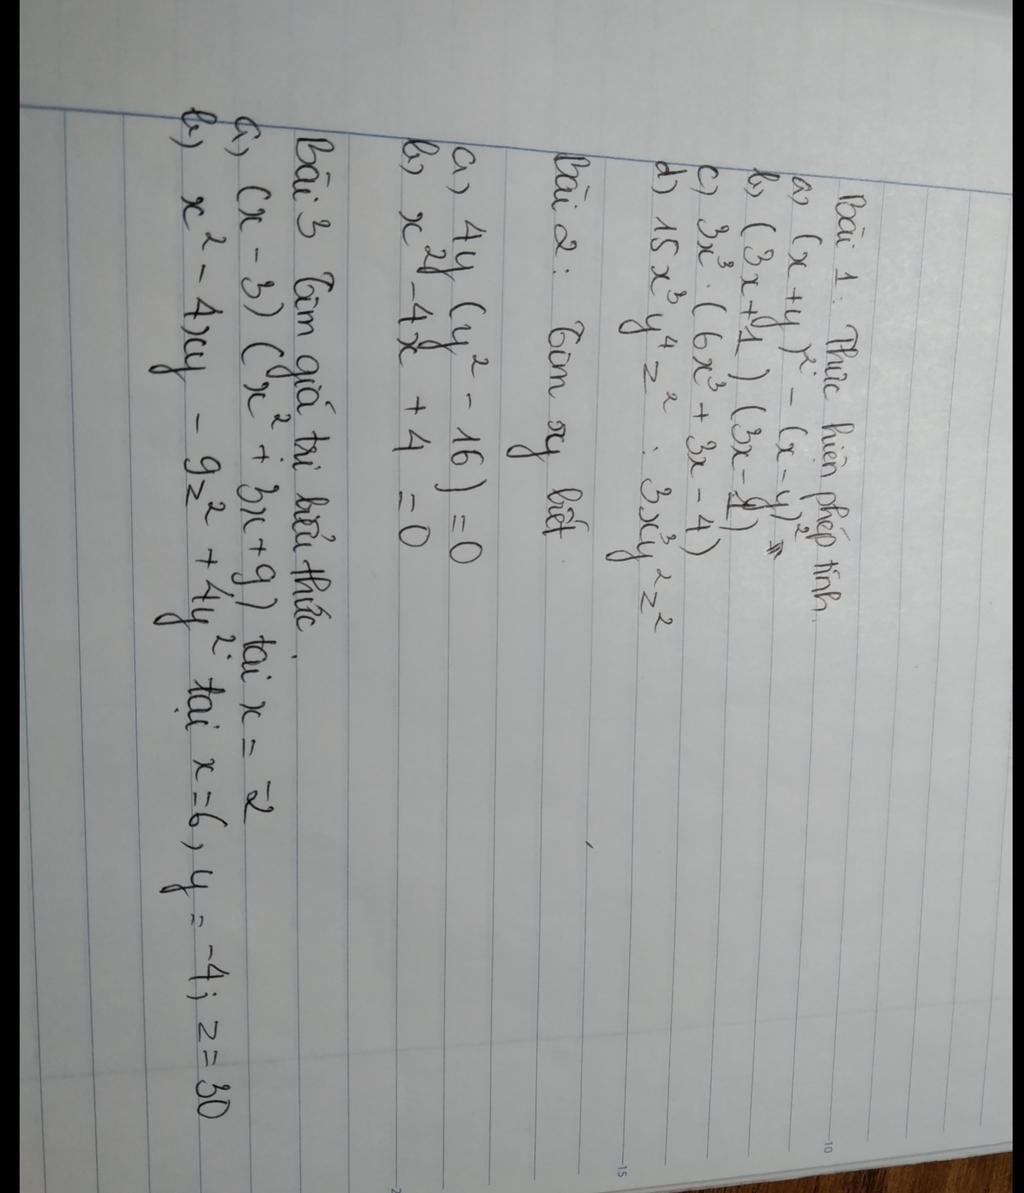 Bài 1: Thực hiện phép tính.
a, (x + y)² - (x - y)²
b, (3x + 1) (3x - 1)
c, 3x³ . (6x³ + 3x - 4)
d) 15x³y⁴z² : 3x³y²z²
Bài 2: Tìm xy biết.
a, 4y (y² - 16) = 0
b, x² - 4x + 4 = 0
Bài 3 Tìm giá trị biểu thức.
a, (x - 3) (x² + 3x + 9) tại x = -2
b, x² - 4xy - 9z² + 4y² tại x = 6, y = -4; z = 30
10
15